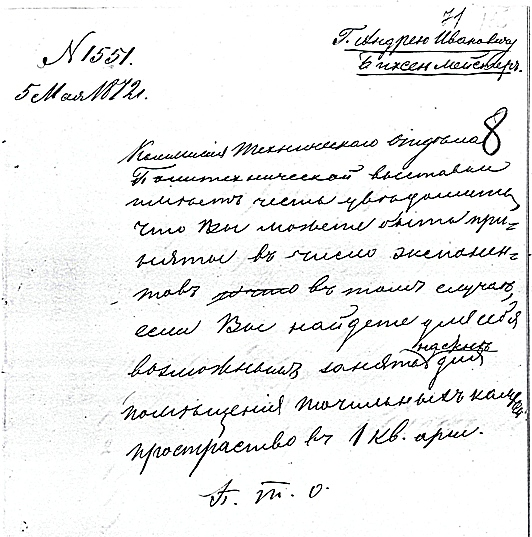 71
N 1551.
5 Мая 1872 г.
Г. Андрею Ивановичу
Бихсенмейстеръ.
8
Коммисія Техническаго отдѣла
Политехнической выставки
имѣетъ честь увѣдомить,
что Вы можете быть при-
няты въ число экспонен-
товъ въ томъ случаѣ,
если Вы найдете для себя
возможнымъ занять для
помѣщенія точильныхъ камней
пространство въ 1 кв. арш.
П. т. о.